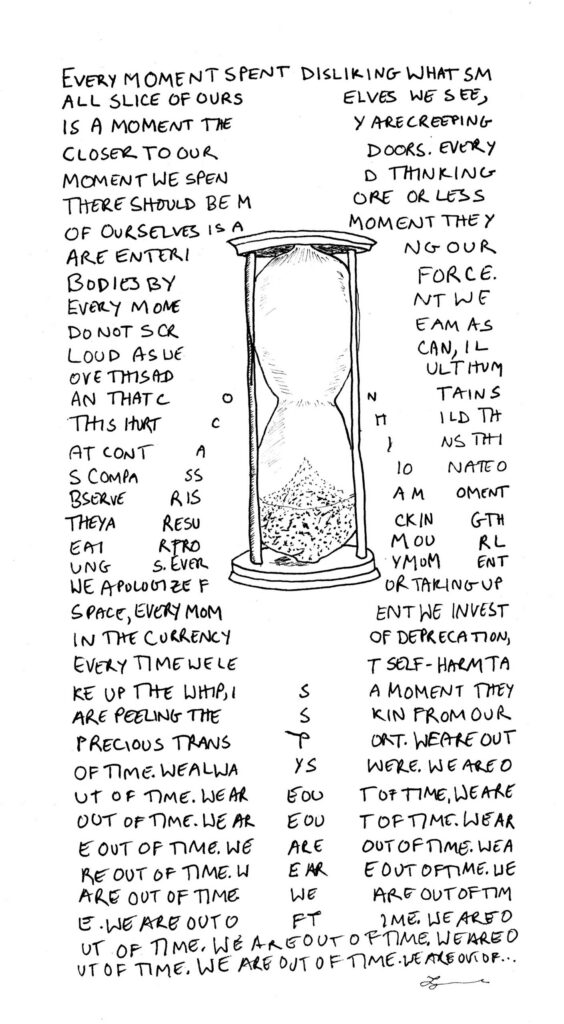 EVERY MOMENT SPENT DISLIKING WHAT SM
ALL SLICE OF OURS ELVES WE SEE,
IS A MOMENT THE Y ARE CREEPING
CLOSER TO OUR DOORS. EVERY
MOMENT WE SPEN D THINKING
THERE SHOULD BE M ORE OR LESS
OF OURSELVES IS A MOMENT THEY
ARE ENTERI NG OUR
BODIES BY FORCE.
EVERY MOME NT WE
DO NOT SCR EAM AS
LOUD AS WE CAN, I L
OVE THIS AD ULT HUM
AN THAT C O N TAINS
THIS HURT C H ILD TH
AT CONT A I NS THI
S COMPA SS IO NATE O
BSERVE R IS A M OMENT
THEY A RESU CKIN G TH
E AI R FRO M OU R L
UNG S. EVER Y MOM ENT
WE APOLOGIZE F OR TAKING UP
SPACE, EVERY MOM ENT WE INVEST
IN THE CURRENCY OF DEPRECATION,
EVERY TIME WE LE T SELF-HARM TA
KE UP THE WHIP, I S A MOMENT THEY
ARE PEELING THE S KIN FROM OUR
PRECIOUS TRANS P ORT. WE ARE OUT
OF TIME. WE ALWA YS WERE. WE ARE O
UT OF TIME. WE AR E OU T OF TIME, WE ARE
OUT OF TIME. WE AR E OU T OF TIME. WE AR
E OUT OF TIME. WE ARE OUT OF TIME. WE A
RE OUT OF TIME. W E AR E OUT OF TIME. WE
ARE OUT OF TIME WE ARE OUT OF TIM
E. WE ARE OUT O F T IME. WE ARE O
UT OF TIME. WE ARE OUT OF TIME. WE ARE O
UT OF TIME. WE ARE OUT OF TIME. WE ARE OUT OF...